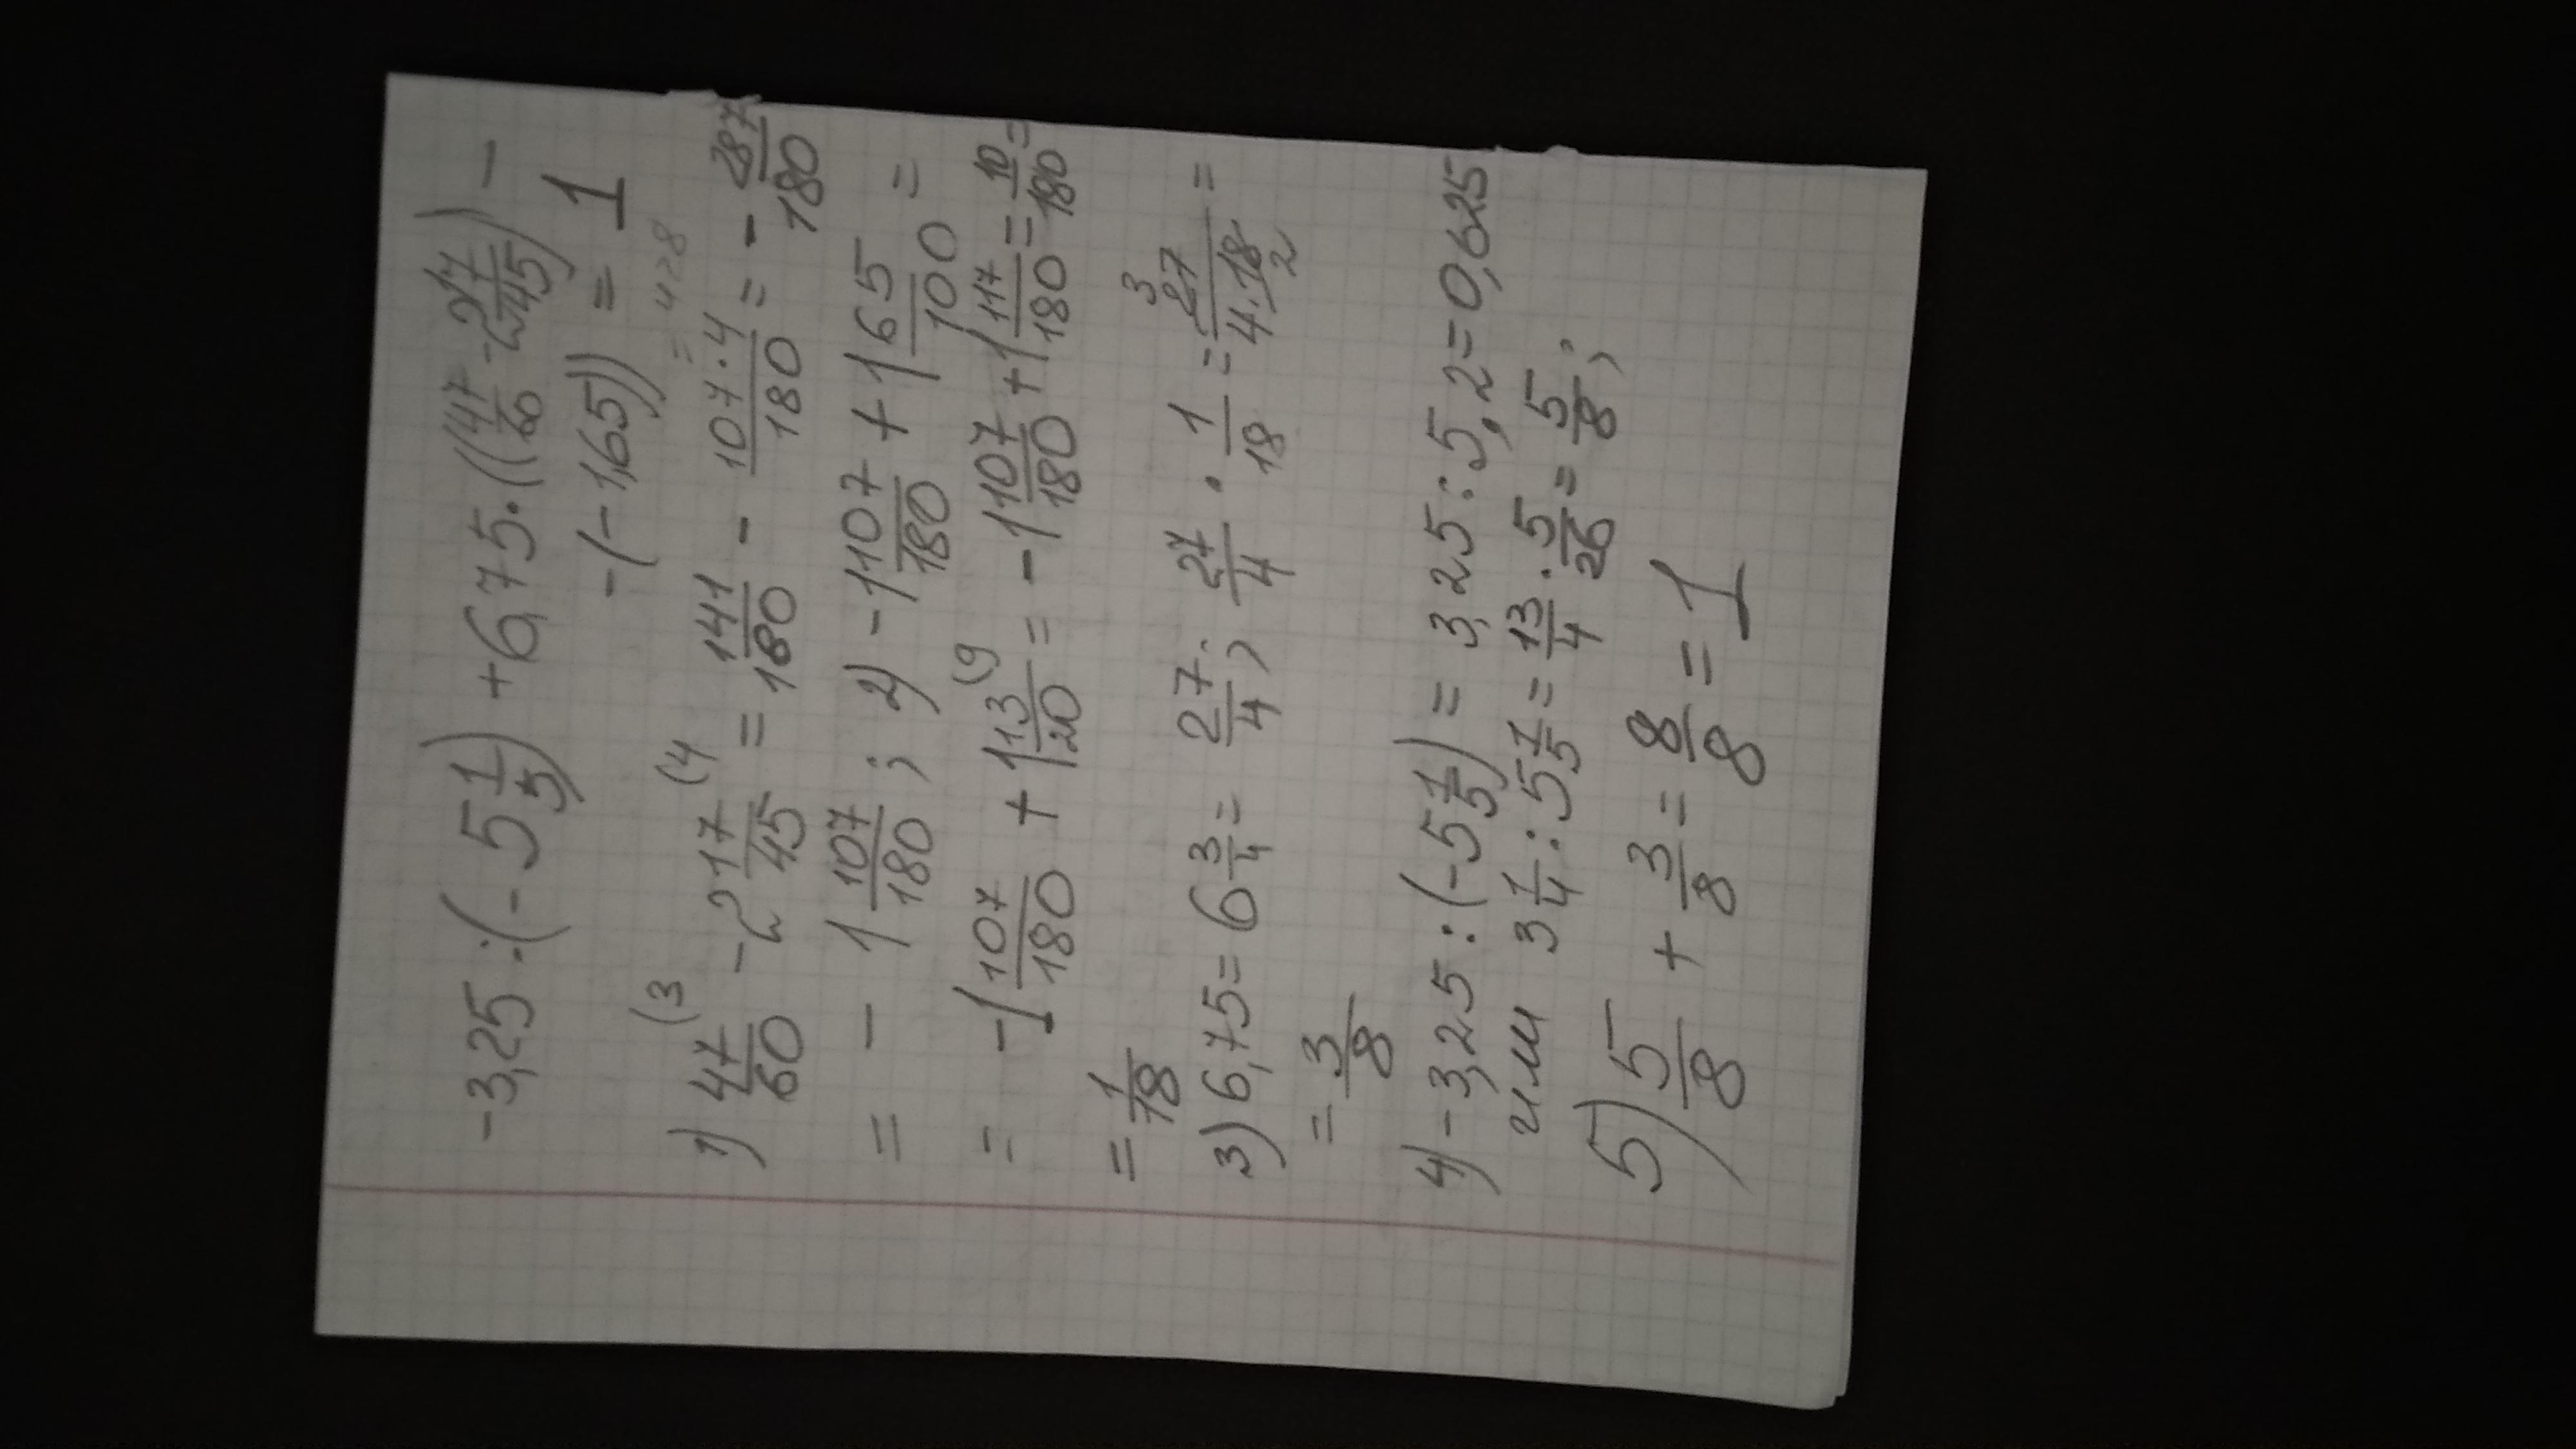 -3,25:(-5 1/5)+6,75·((47/60-2 17/45)-
-(-1,65))=1
=428
1) 47/60 (3 -2 17/45 (4 = 141/180 - 107·4/180 = - 287/180
= - 1 107/180; 2) -1 107/180 + 1 65/100 =
= -1 107/180 + 1 13/20 (9 = -1 107/180 + 1 117/180 = 10/180 =
= 1/18
3) 6,75 = 6 3/4 = 27/4; 27/4 · 1/18 = 27 3/4·18 2 =
= 3/8
4) -3,25:(-5 1/5) = 3,25:5,2=0,625
или 3 1/4:5 1/5 = 13/4 · 5/26 = 5/8;
5) 5/8 + 3/8 = 8/8 = 1